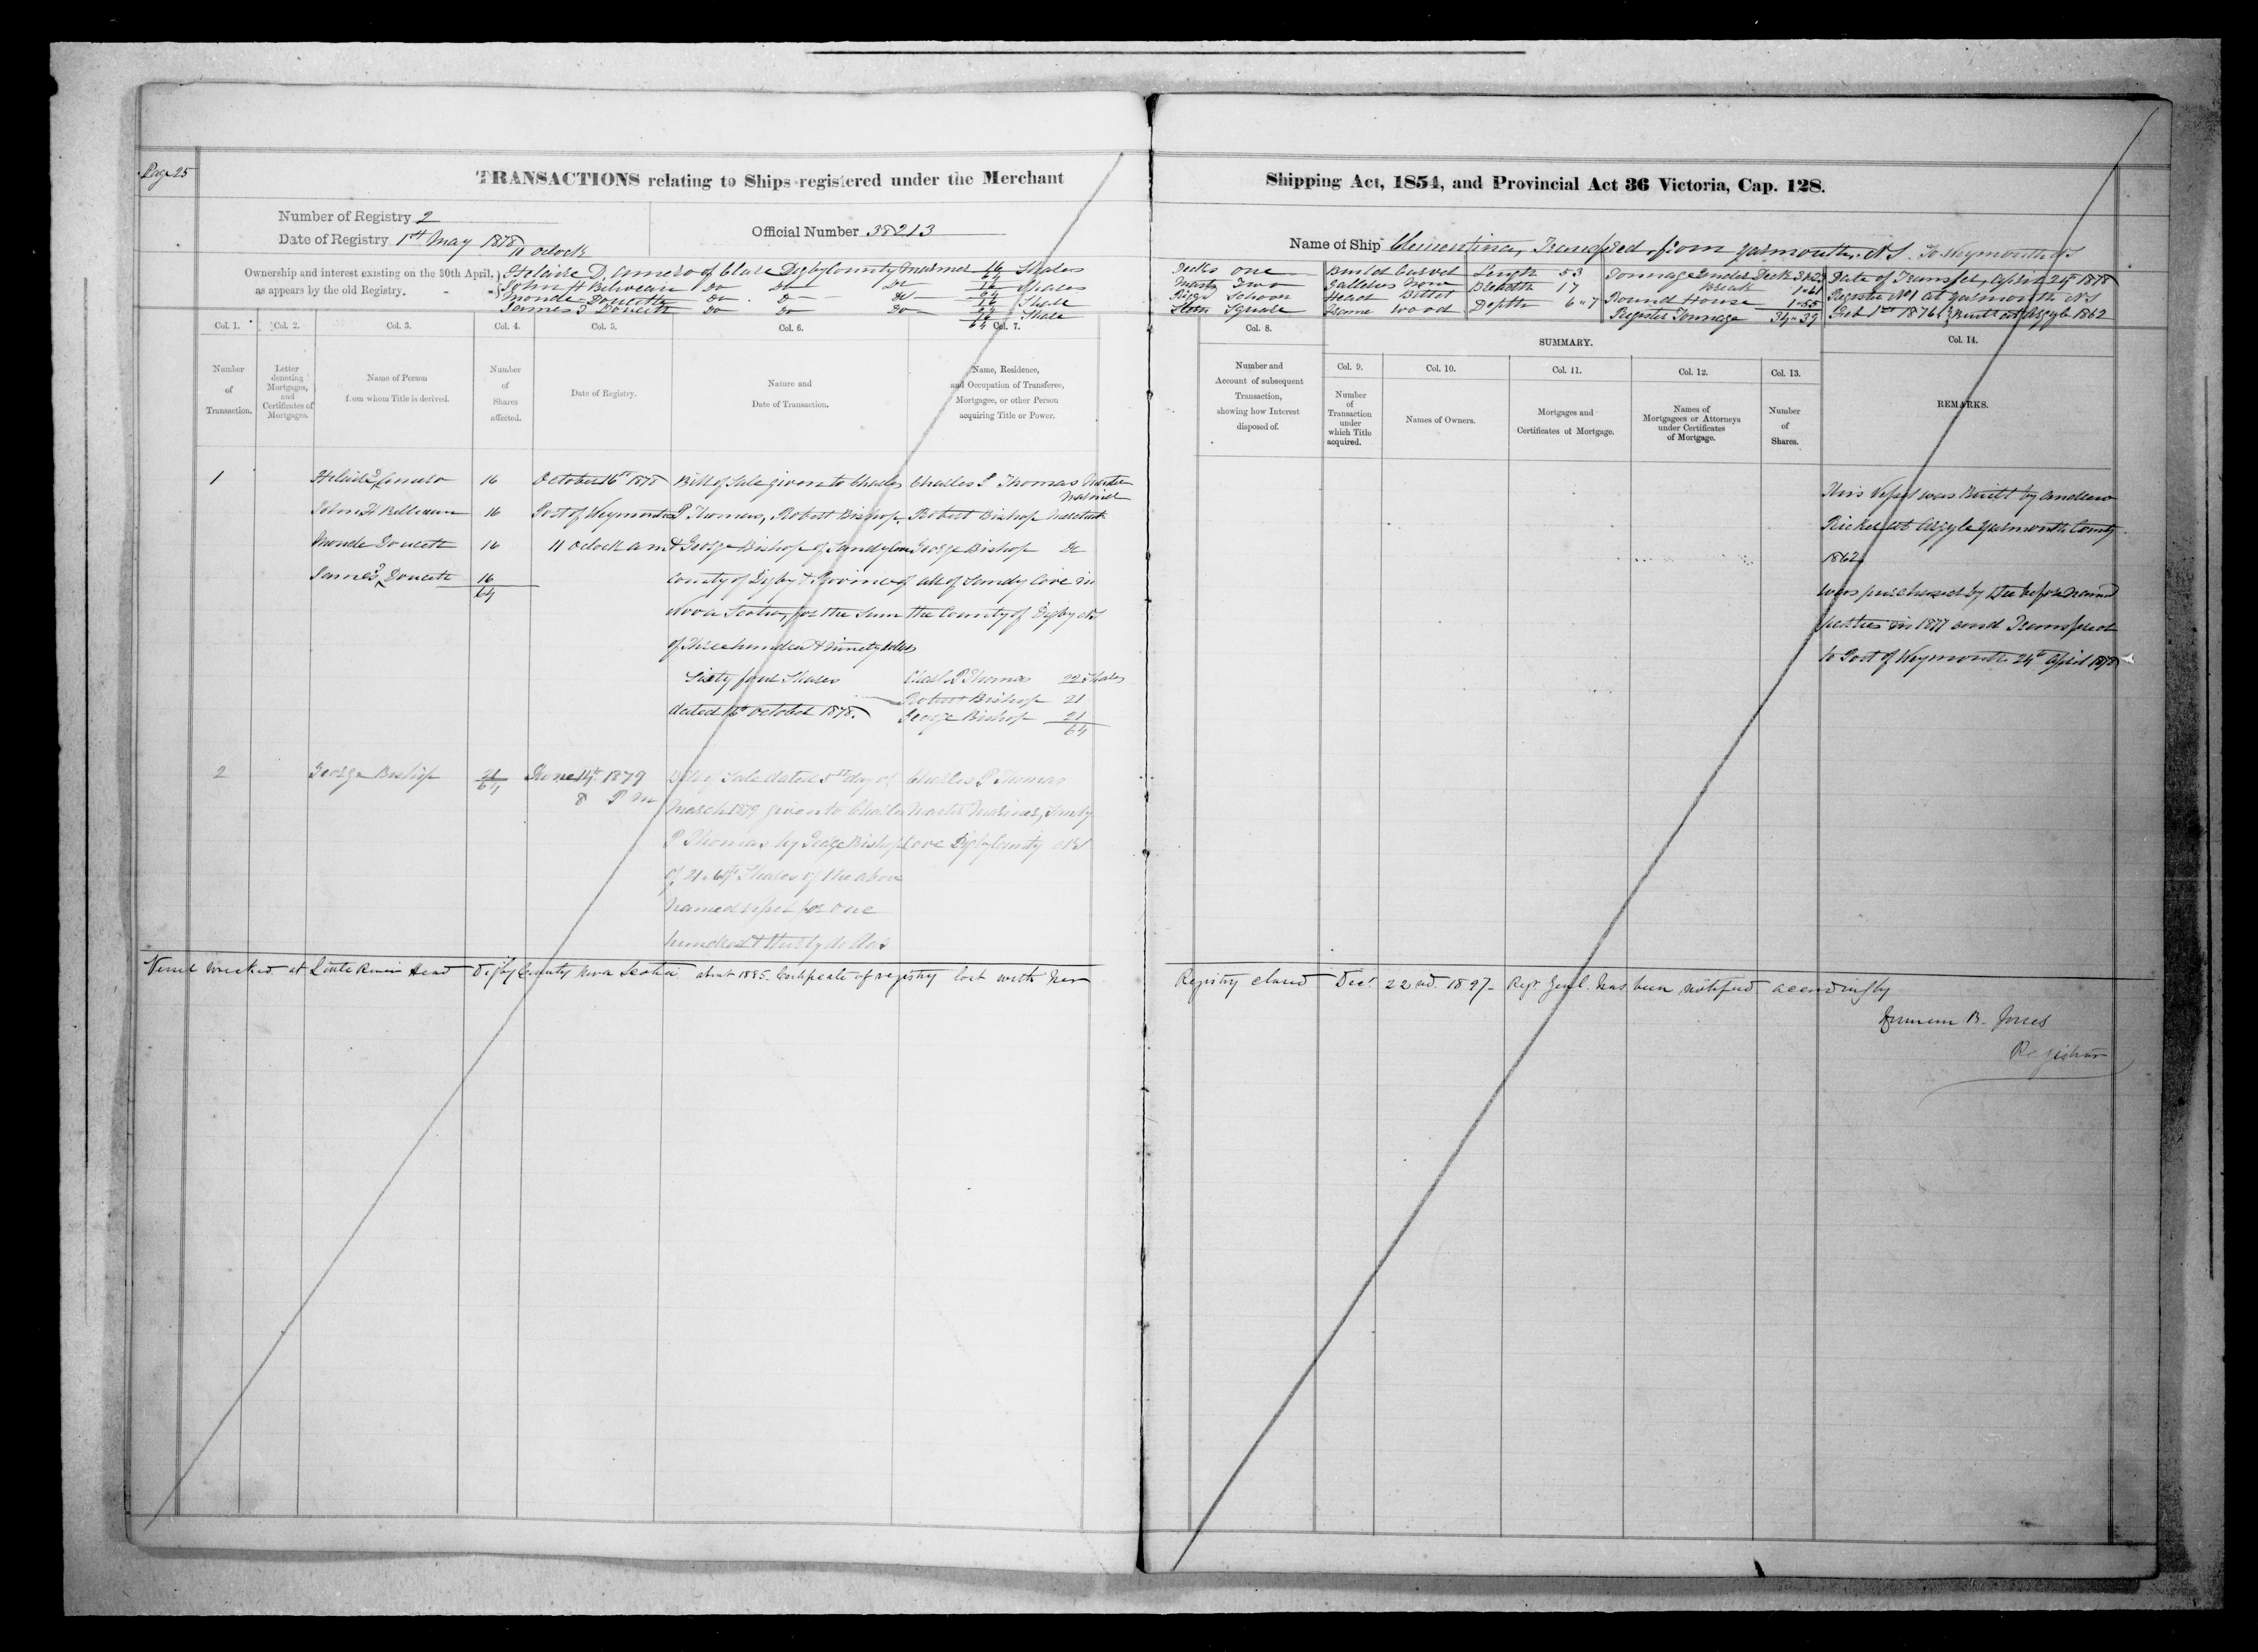 Page 25
TRANSACTIONS relating to Ships registered under the Merchant
Number of Registry 2
Date of Registry 1st May 1878 11 oclock
Official Number 38213
Ownership and interest existing on the 30th April,
as appears by the old Registry. - -
D. Amero of Clare Digby County Mariner 16/64 Shares
John H Belliveau Do Do Do 16/64 Shares
Monde Doucette Do Do Do 16/64 Share
James Doucett Do Do Do 16/64 Share
Col. 1. Col. 2. Col. 3. Col. 4. Col. 5. Col. 6. Col. 7.
Number of Transaction.
Letter denoting Mortgages, and Certificates of Mortgages.
Name of Person from whom Title is derived.
Number of Shares affected.
Date of Registry.
Nature and Date of Transaction.
Name, Residence, and Occupation of Transferee, Mortgagee, or other Person acquiring Title or Power.
1
Amero 16
John H Belliveau 16
Monde Doucett 16
James Doucett 16
64
October 16th 1878
Port of Weymouth
11 oclock a m
Bill of Sale given to Charles
P Thomas, Robert Bishop
& George Bishop of Sandy Cove
County of Digby & Province of
Nova Scotia, for the Sum
of Three hundred & ninety dollars
Sixty four Shares
dated October 1878.
Charles P Thomas Master
Mariner
Robert Bishop Merchant
George Bishop Do
all of Sandy Cove in
the County of Digby NS
Charl. P Thomas 22 Shares
Robert Bishop 21
George Bishop 21
64
2
George Bishop 21/64
June 14th 1879
8 P M
Bill of Sale dated 5th day of
March 1879 given to Charles
P Thomas by George Bishop
of 21.64th Shares of the above
named vessel for one
hundred & thirty dollars
Charles P Thomas
Master Mariner, Sandy
Cove Digby County NS
Vessel wrecked at Little River Head Digby County Nova Scotia about 1885. Certificate of registry lost with her
Shipping Act, 1854, and Provincial Act 36 Victoria, Cap. 128.
Name of Ship Clementina, Transfered from Yarmouth, N.S. To Weymouth NS
Decks One
Masts Two
Rigg Schoon
Stern Square
Build Carvel
Galleries None
Head Billet
Frame Wood
Length 53
Breadth 17
Depth 6"7
Tonnage Under Deck
Break 1"61
Round House 1"55
Register Tonnage 34"39
Date of Transfer, April 24th 1878
Register No 1 at Yarmouth NS
Feb 1st 1876 Built at Argyle 1862
Col. 8.
Number and Account of subsequent Transaction, showing how Interest disposed of.
SUMMARY.
Col. 9. Col. 10. Col. 11. Col. 12. Col. 13.
Number of Transaction under which Title acquired.
Names of Owners.
Mortgages and Certificates of Mortgage.
Names of Mortgagees or Attorneys under Certificates of Mortgage.
Number of Shares.
Col. 14.
REMARKS.
This Vessel was Built by Andrew
at Argyle Yarmouth County
1862
was purchased by the before named
parties in 1877 and Transfered
to Port of Weymouth 24th April 1878
Registry closed Decr 22nd. 1897 - Regr. Genl. has been notified accordingly
B. Jones
Registrar